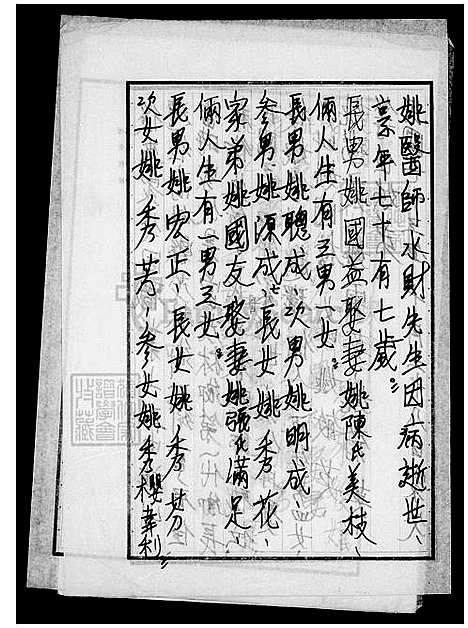 姚醫師水財先生因病逝世、
享年七十有七歲
長男姚國益娶妻姚陳氏美枝、
倆人生有三男一女
長男姚聰成、次男姚明成、
參男姚源成、長女姚秀花、
家弟姚國友娶妻姚張氏滿足、
倆人生有一男三女
長男姚宏正、長女姚秀芬、
次女姚秀芳、參女姚秀櫻